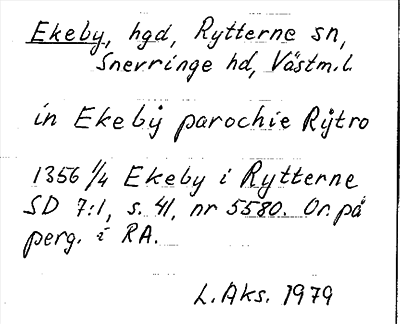 Ekeby, hgd, Rytterne sn,
Snevringe hd, Västm.l.
in Ekebÿ parochie Rÿtro
1356 1/4 Ekeby i Rytterne
SD 7:1, s. 41, nr 5580. Or. på
perg. i RA.
L. Aks. 1979